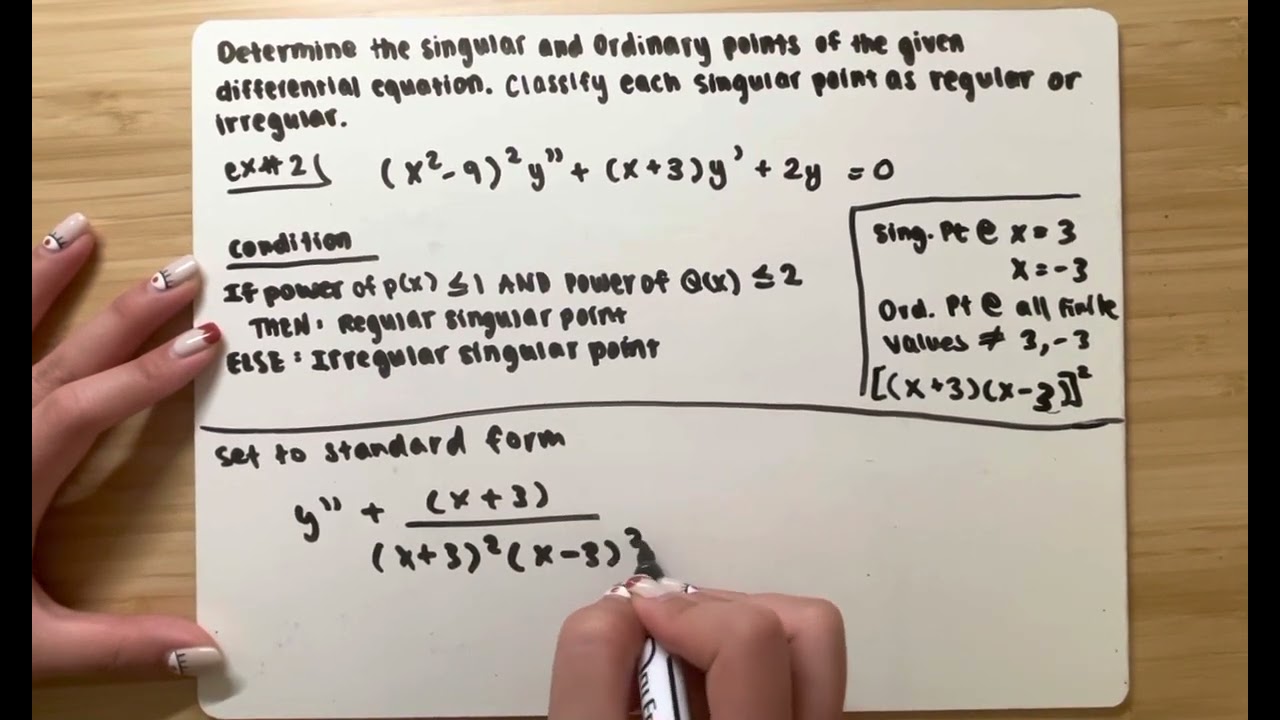 Determine the singular and Ordinary points of the given
differential equation. Classify each singular point as regular or
irregular.
ex# 2 (x²-9)²y" + (x+3)y' + 2y = 0
Condition
If power of p(x) ≤ 1 AND Power of Q(x) ≤ 2
THEN: Regular singular point
ELSE: Irregular singular point
Sing. Pt @ x = 3
x = -3
Ord. Pt @ all finite
values ≠ 3, -3
[(x+3)(x-3)]²
Set to standard form
y" + (x+3)
(x+3)²(x-3)²